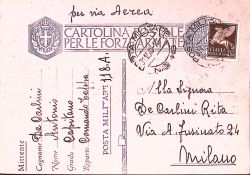 per via Aerea
CARTOLINA POSTALE
PER LE FORZE ARMATE
Mittente
Cognome De Carlini
Nome Antonio
Grado Capitano
Reparto Comando Tappa
POSTA MILITARE 118A.
Alla Signora
De Carlini Rita
Via A. Fusinato 24
Milano